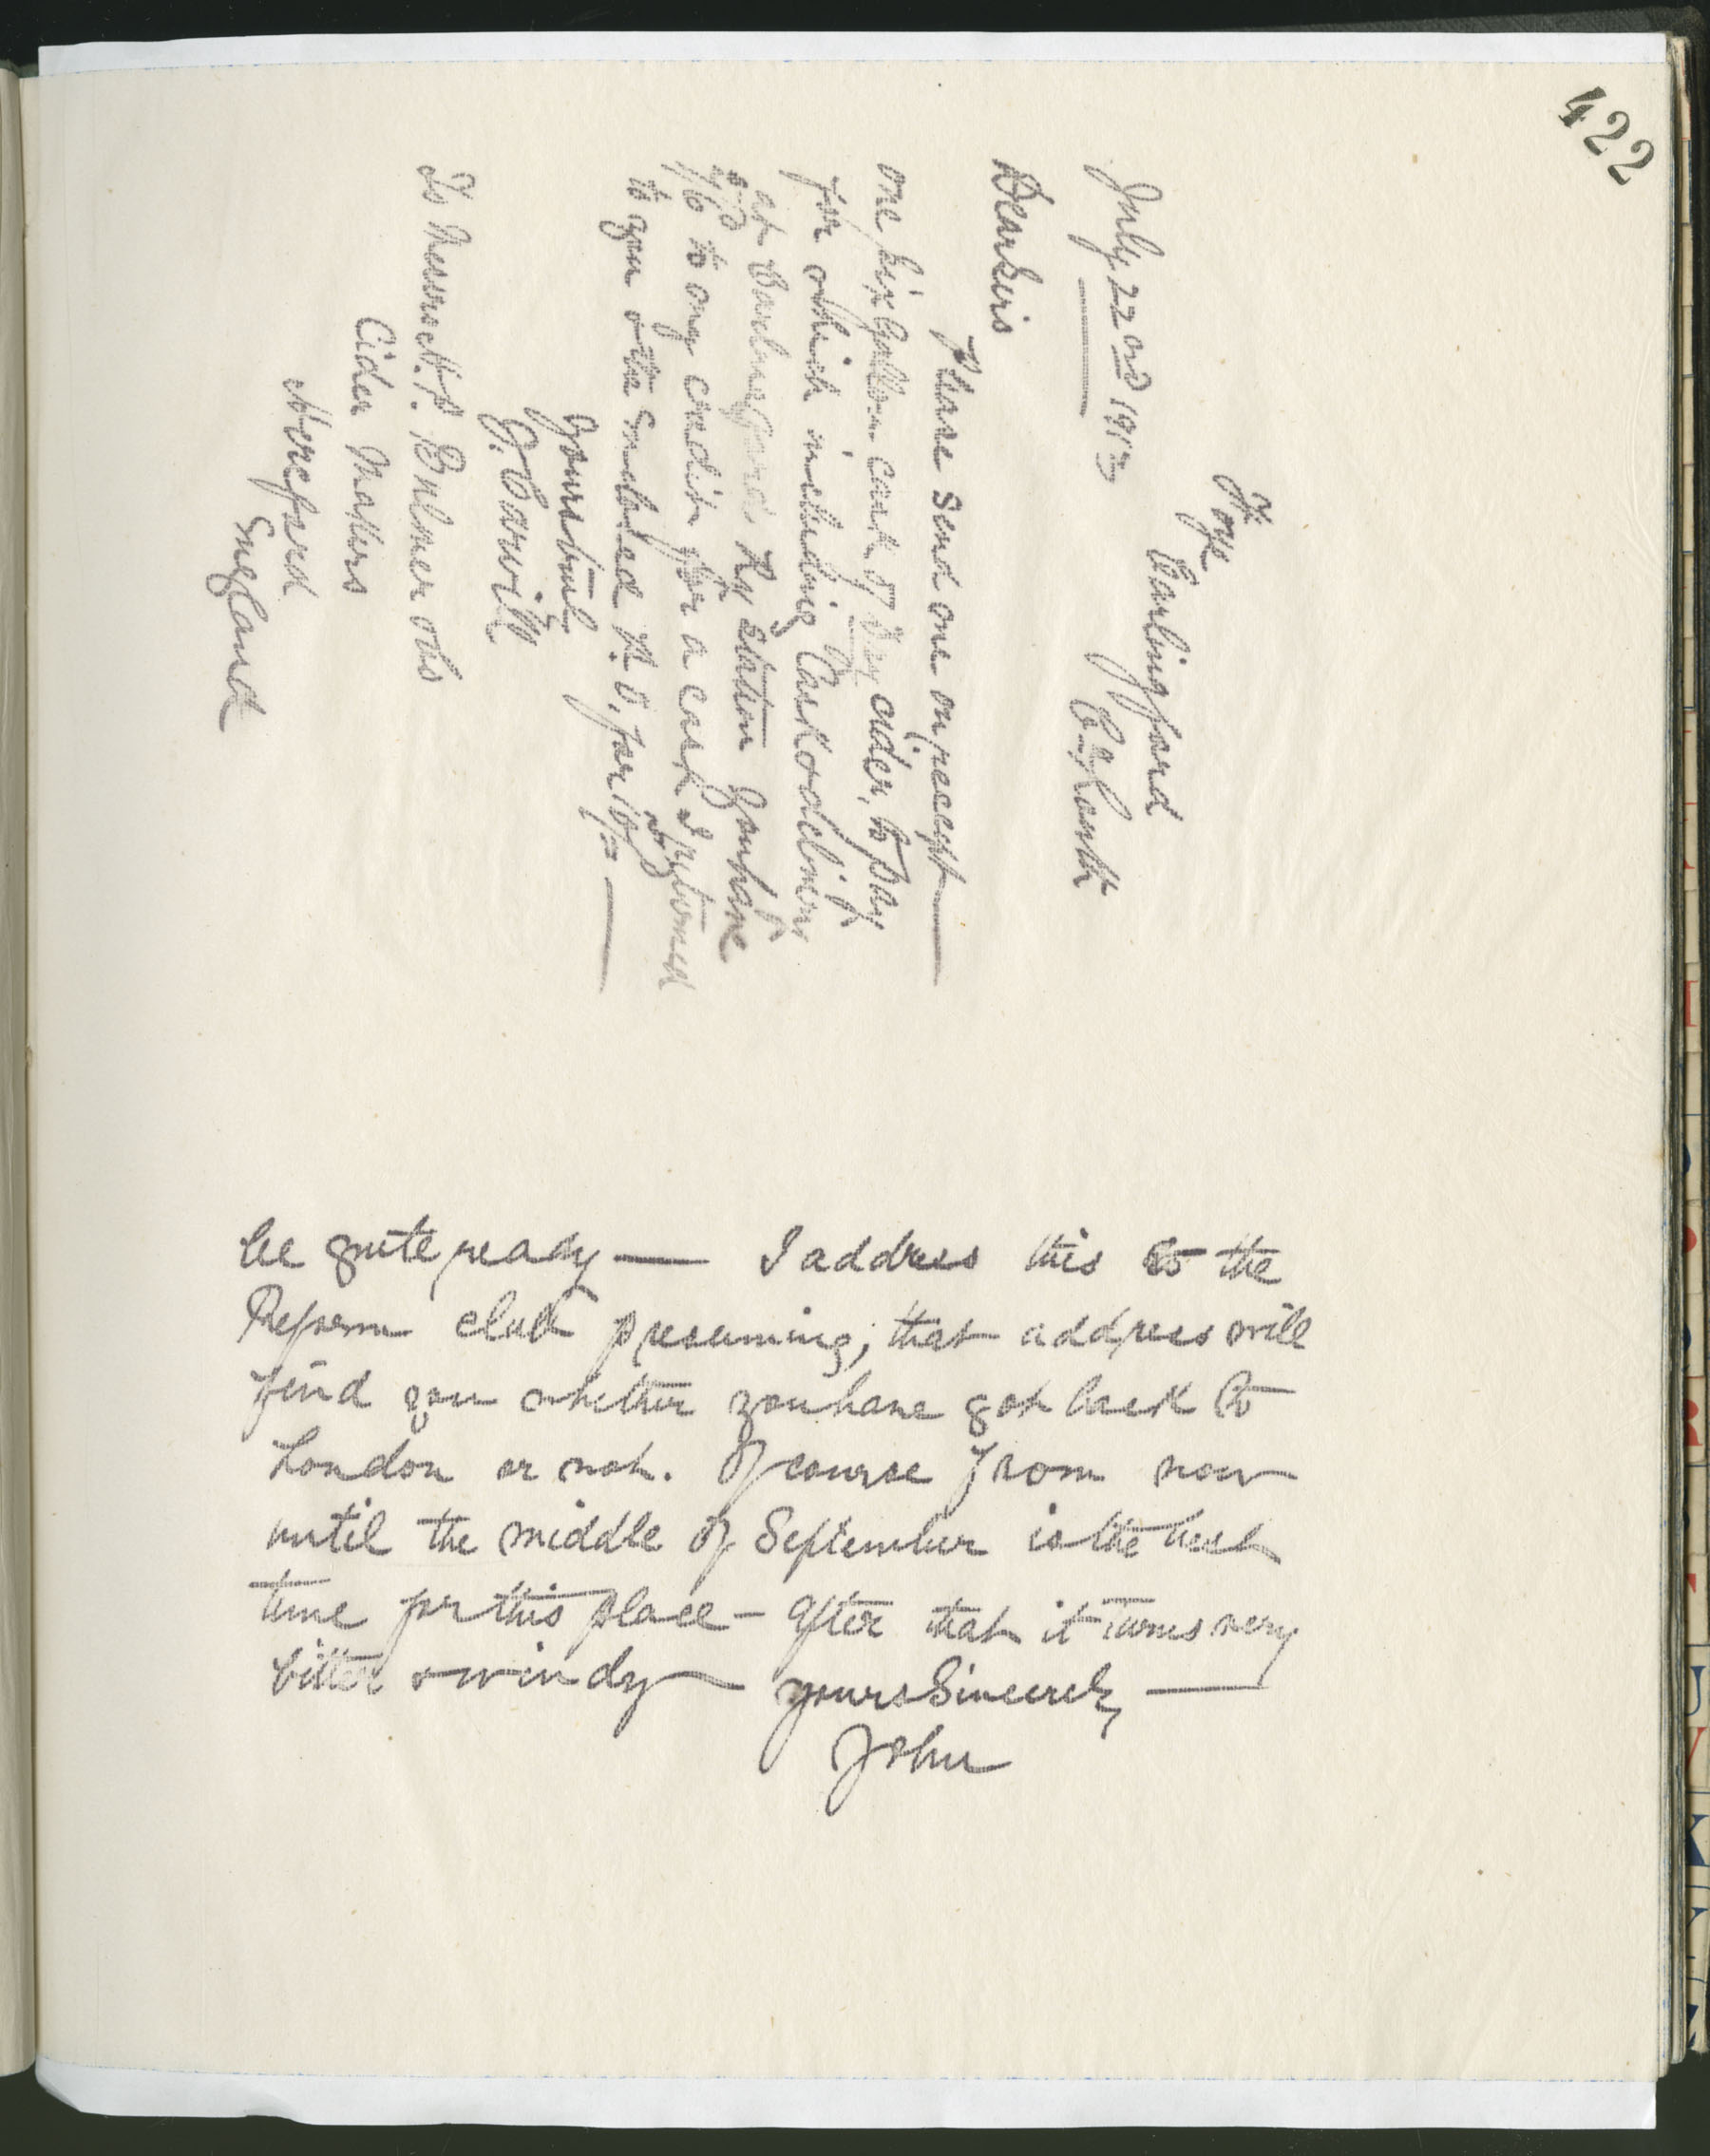 422
Foye
Carlingford
Co Louth
July 22nd 1913
Dear Sirs
Please send me on receipt —
one six Gallon cask of Dry cider, to pay
for which including Cask & delivery
at Carlingford Ry station you have
7/6 to my credit for a cask I returned
to you & the enclosed P. O. for 10/=
Yours truly
J. Carvill
To Messrs H. P. Bulmer & Co
Cider Makers
Hereford
England
be quite ready — I address this to the
Reform club presuming, that address will
find you whether you have got back to
London or not. Of course from now
until the middle of September is the best
time for this place — After that it turns very
bitter & windy yours Sincerely —
John